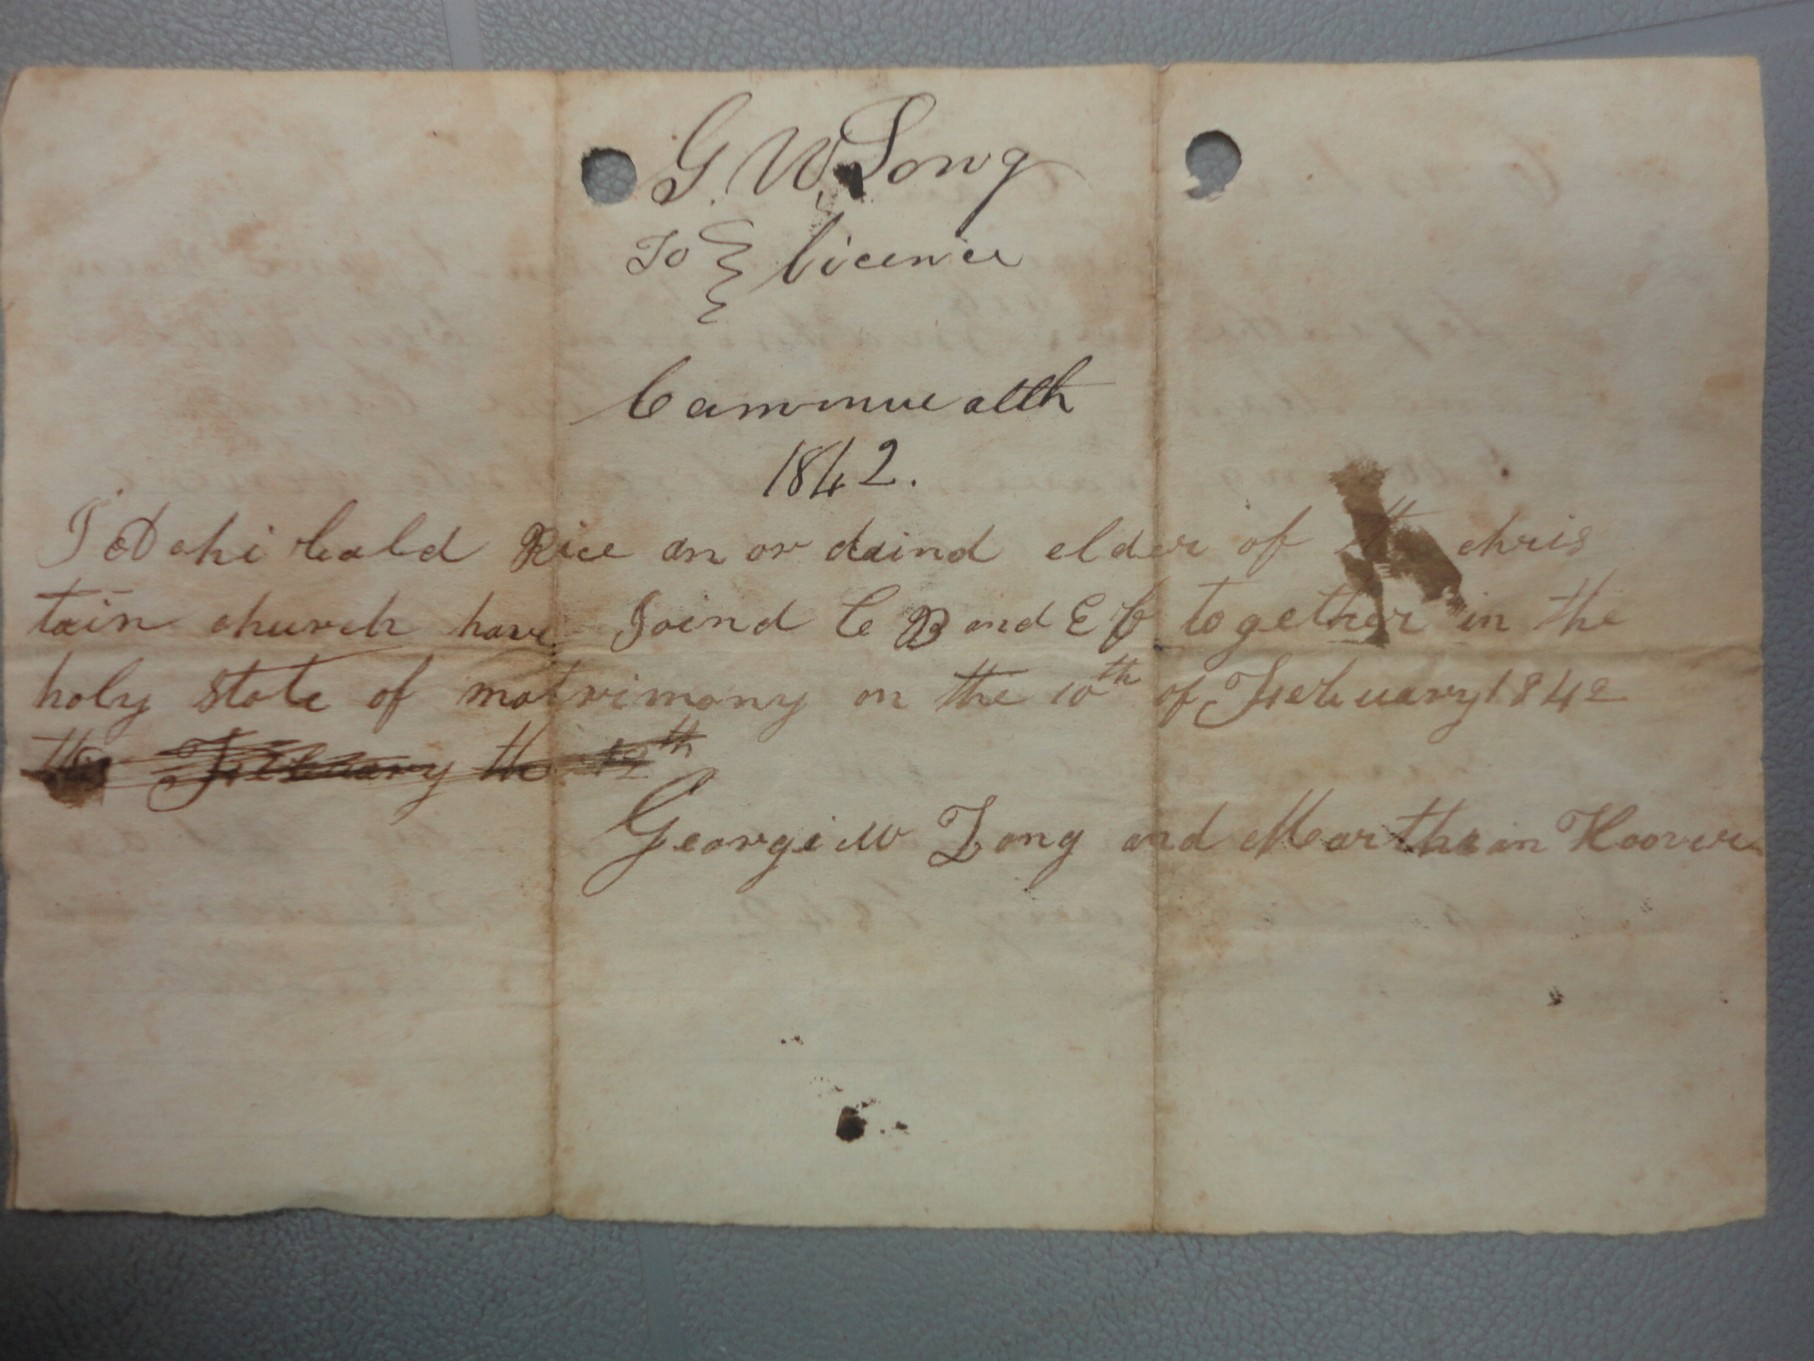 G. W. Long
To Licence
Commonwealth
1842.
I Rice an or daind elder of chris
tain church have Joind C B and E C together in the
holy state of matrimony on the 10th of Februarry 1842
the Februarry the 12th
George W Long and Marthaan Hoover